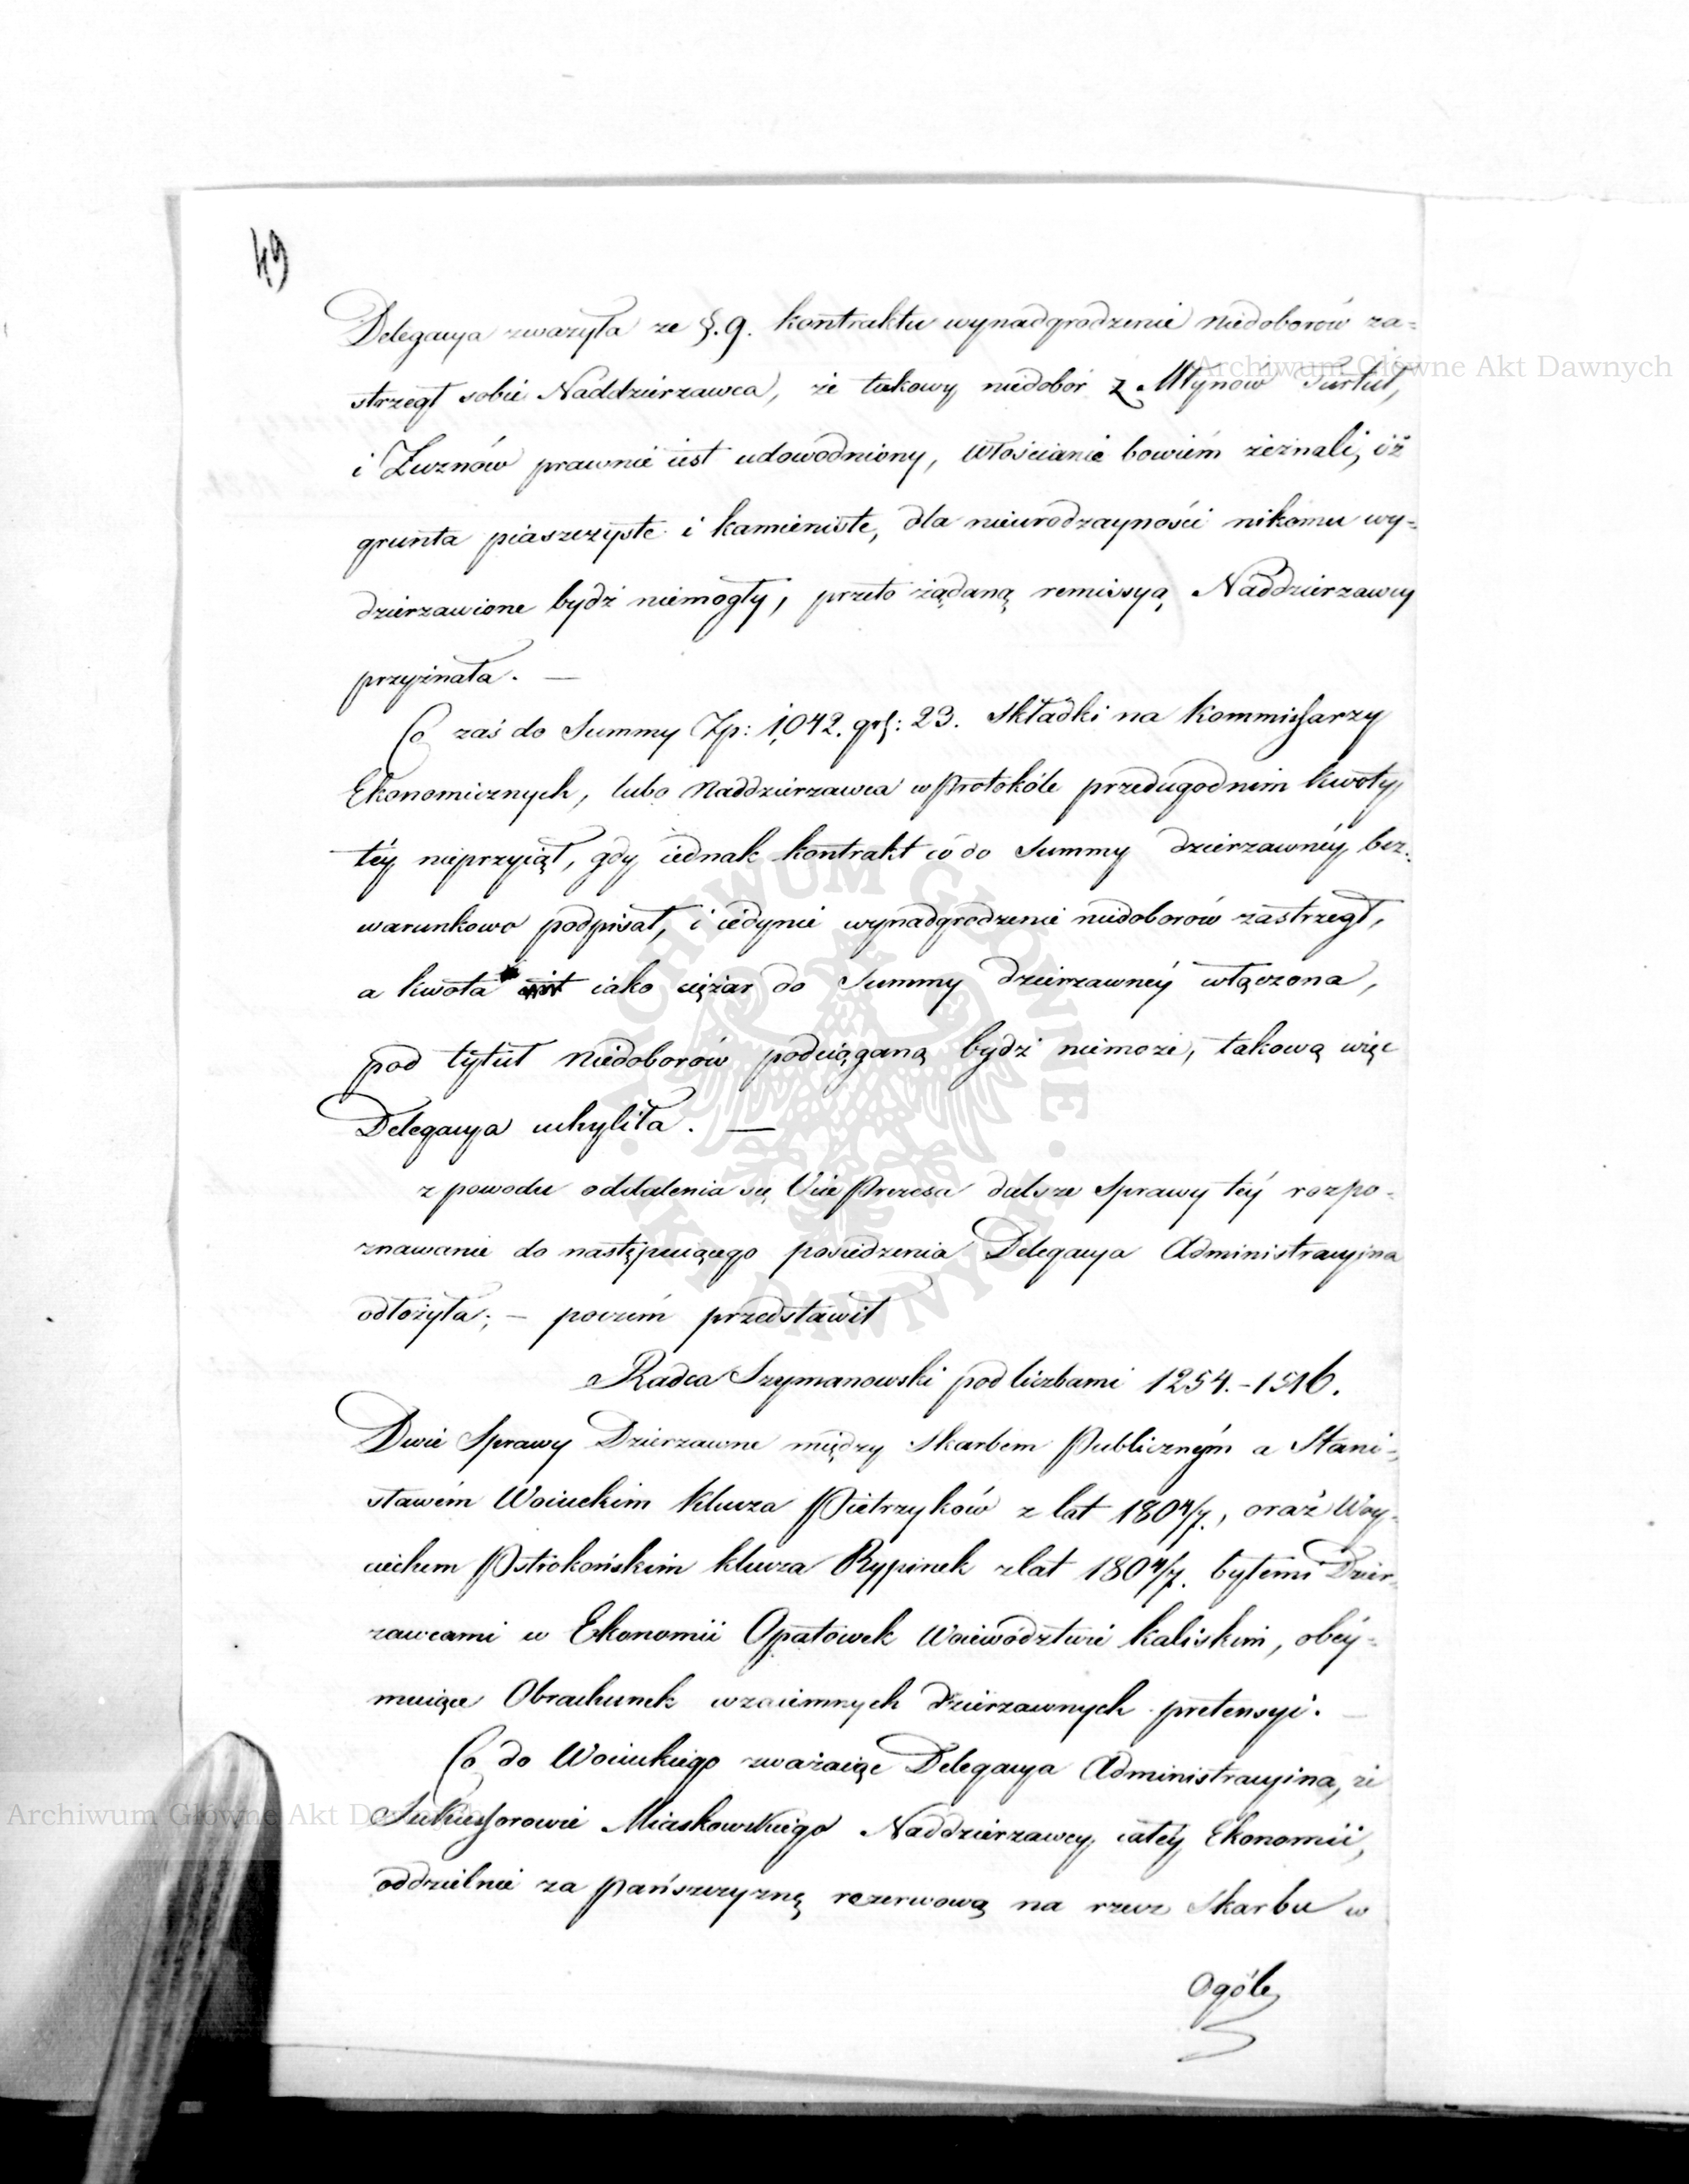 49
Delegacya zważyła że §. 9. kontraktu wynadgrodzenie niedoborów za=
strzegł sobie Naddzierzawca, że takowy niedobór z Młynów Turłut,
i prawnie iest udowodniony, Włościanie bowiém zeznali, iż
grunta piaszczyste i kamieniste, dla nieurodzayności nikomu wy=
dzierzawione bydź niemogły, przeto żądaną remissyą Naddzierzawcy
przyznała. —
Co zaś do Summy Zp: 1,042. gr: 23. Składki na Kommissarzy
Ekonomicznych, lubo Naddzierzawca w Protokóle przedugodnim kwoty
téy nieprzyiął, gdy iednak kontrakt co do Summy dzierzawnéy bez=
warunkowo podpisał, i iedynie wynadgrodzenie niedoborów zastrzegł,
a kwota iako ciężar do Summy dzierzawnéy włączona,
pod tytuł niedoborów podciąganą bydź niemoże, takową więc
Delegacya uchyliła. —
z powodu oddalenia się Vice Prezesa dalsze Sprawy téy rozpo=
znawanie do następuiącego posiedzenia Delegacya Administracyina
odłożyła; — poczém przedstawił
Radca Szymanowski pod liczbami 1254. – 1516.
Dwie Sprawy Dzierzawne między Skarbem Publicznym a Stani=
sławém Woiuckim Klucza Pietrzyków z lat 1804/7., oraz Woy=
ciechem Pstrokońskim klucza Rypinek z lat 1804/7. byłemi Dzier=
zawcami w Ekonomii Opatówek Woiewództwie Kaliskim, obéy=
muiące Obrachunek wzaiemnych dzierzawnych pretensyi. —
Co do Woiuckiego zważaiąc Delegacya Administracyina, że
Sukcessorowie Miaskowskiego Naddzierzawcy całéy Ekonomii,
oddzielnie za pańszczyznę rezerwową na rzecz Skarbu w
Ogóle
Archiwum Główne Akt Dawnych
Archiwum Główne Akt Dawnych
ARCHIWUM GŁÓWNE AKT DAWNYCH